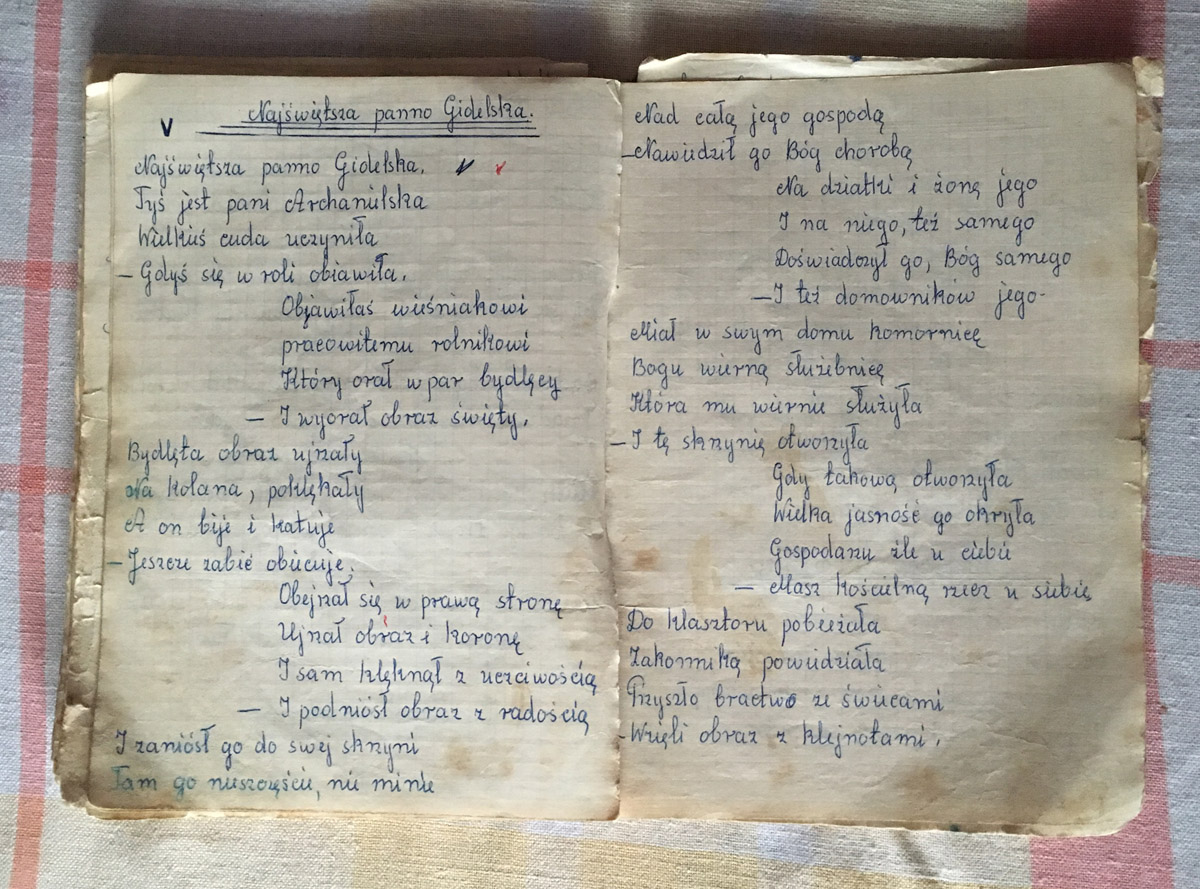 Najświętsza panno Gidelska.
Najświętsza panno Gidelska.
Tyś jest pani Archanielska
Wielkiś cuda uczyniła
– Gdyś się w roli obiawiła.
Objawiłaś wieśniakowi
pracowitemu rolnikowi
Który orał w par bydlęcy
– I wyorał obraz święty.
Bydlęta obraz ujrzały
Na kolana, poklękały
A on bije i katuje
– Jeszcze zabić obiecuje.
Obejrzał się w prawą stronę
Ujrzał obraz i koronę
I sam klęknął z uczciwością
– I podniósł obraz z radością
I zaniósł go do swej skrzyni
Tam go nieszczęście, nie minie
Nad całą jego gospodą
– Nawiedził go Bóg chorobą
Na dziatki i żoną jego
I na niego, też samego
Doświadczył go, Bóg samego
– I też domowników jego-
Miał w swym domu komornicę
Bogu wierną służebnicę
Która mu wiernie służyła
– I tę skrzynię otworzyła
Gdy takową otworzyła
Wielka jasność go okryła
Gospodarzu źle u ciebie
– Masz kościelną rzecz u siebie
Do klasztoru pobieżała
Zakonniką powiedziała
Przyszło bractwo ze świecami
– Wzięli obraz z klejnotami.